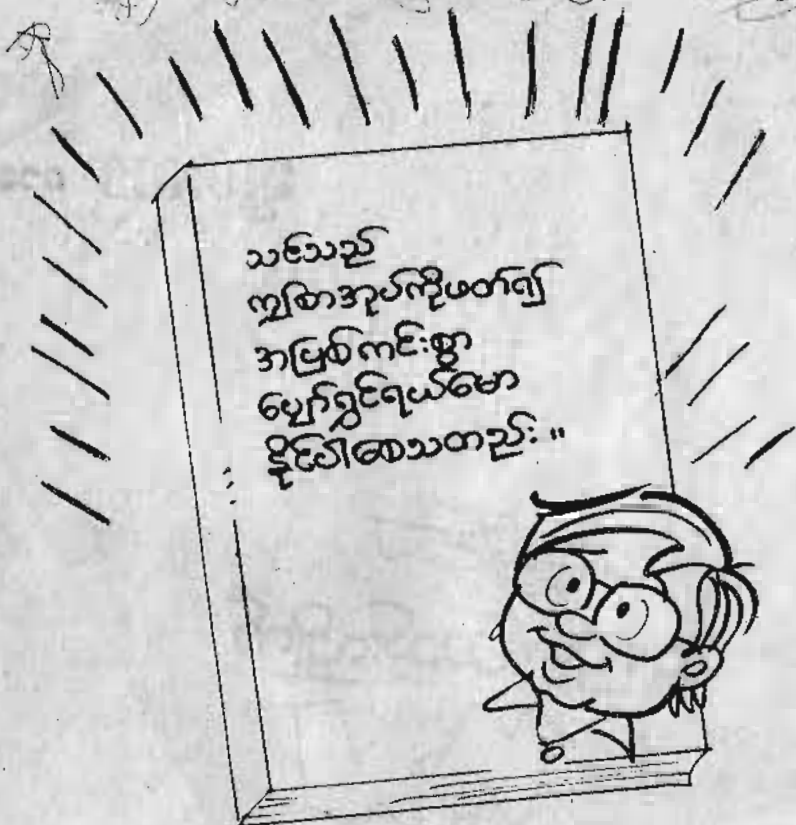 သင်သည်
ဤစာအုပ်ကိုဖတ်၍
အပြစ်ကင်းစွာ
ပျော်ရွှင်ရယ်မော
နိုင်ပါစေသတည်း။